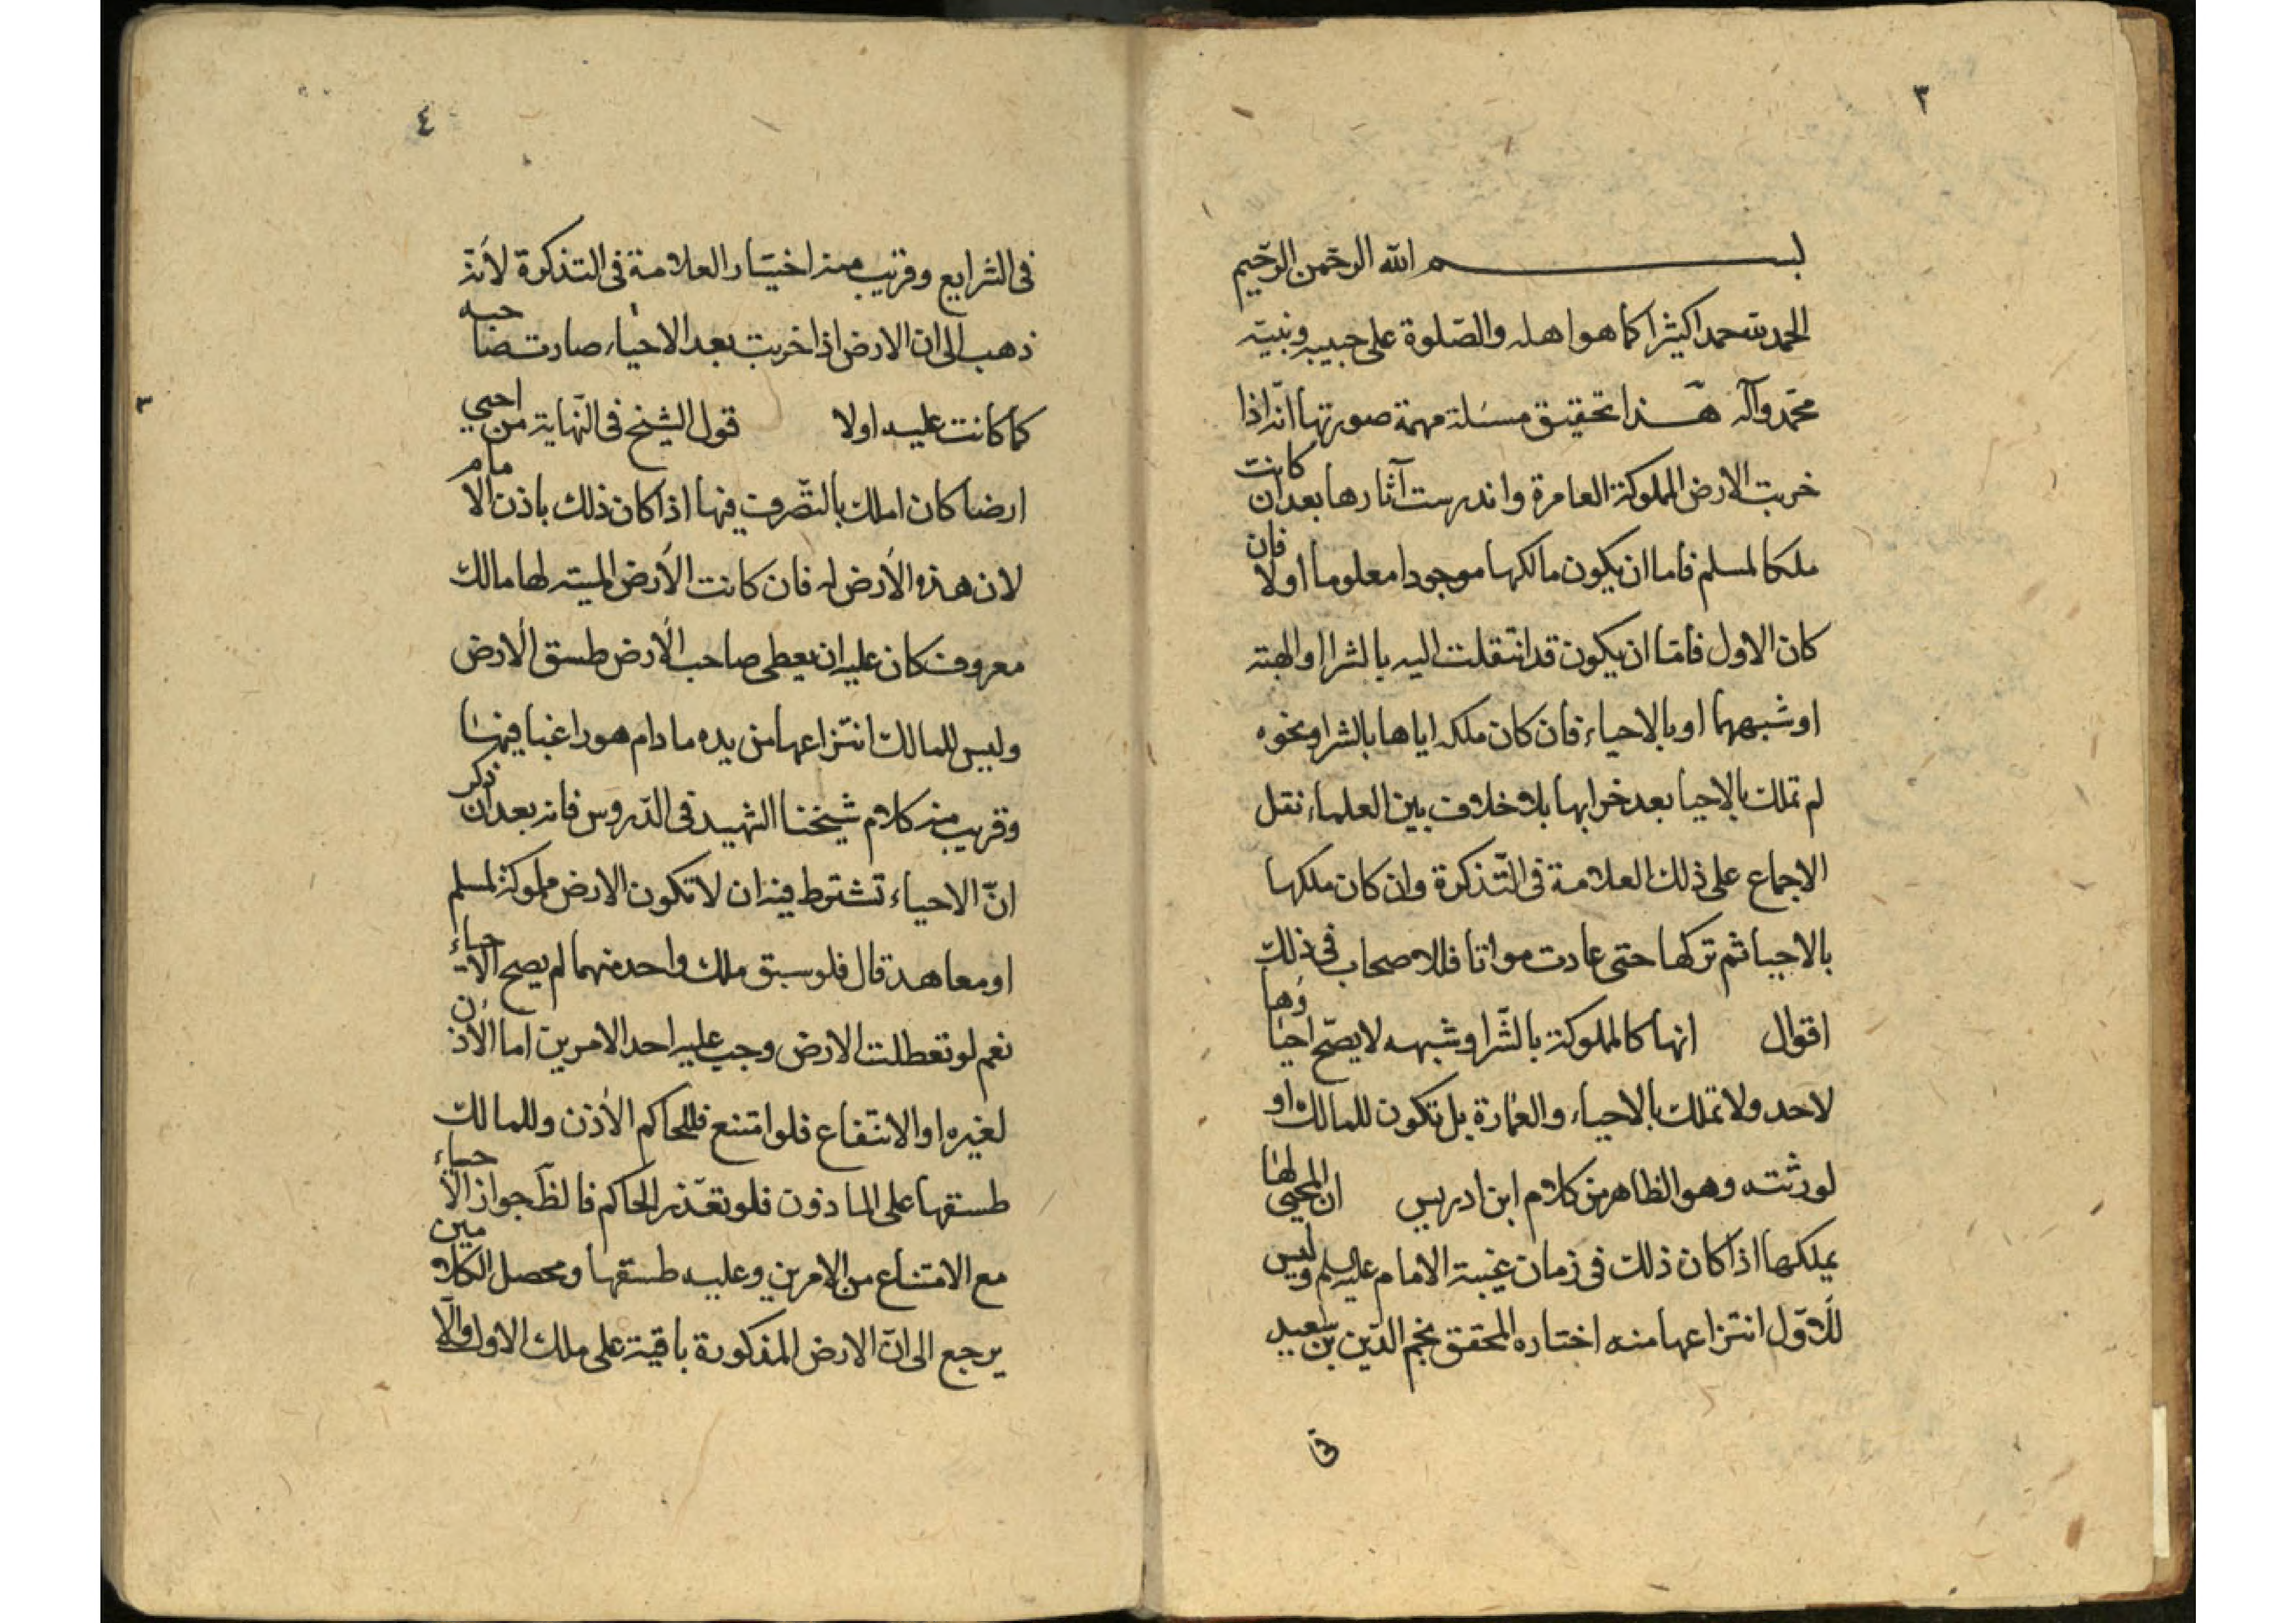 ٣
بسم الله الرحمن الرحيم
الحمد لله حمدا كثيرا كما هو اهله والصّلوة على حبيبه ونبيّه
محمّد وآله هذا تحقيق مسئلة مهمة صورتها انّه اذا
خربت الارض المملوكة العامرة واندرست آثارها بعد ان كانت
ملكا لمسلم فاما ان يكون مالكها موجودا معلوما اولا فان
كان الاول فامّا ان يكون قد انتقلت اليه بالشرا او الهبة
او شبههما او بالاحياء فان كان ملكه اياها بالشرا ونحوه
لم تملك بالاحيا بعد خرابها بلا خلاف بين العلماء نقل
الاجماع على ذلك العلامة فى التّذكرة وان كان ملكها
بالاحيا ثم تركها حتى عادت مواتا فللاصحاب فى ذلك
اقوال انها كالمملوكة بالشّرا وشبهه لا يصّح احياؤها
لاحد ولا تملك بالاحياء والعمارة بل تكون للمالك او
لورثته وهو الظاهر من كلام ابن ادريس ان المحيى لها
يملكها اذا كان ذلك فى زمان غيبة الامام عليه السلم وليس
للاوّل انتزاعها منه اختاره المحقق نجم الدّين بن سعيد
فى
٤
فى الشرايع وقريب منه اختيار العلامة فى التذكرة لأنه
ذهب الى ان الارض اذا خربت بعد الاحياء صارت مباحه
كما كانت عليه اولا قول الشيخ فى النّهاية من احيى
ارضا كان املك بالتصّرف فيها اذا كان ذلك باذن الامام
لان هذه الأرض له فان كانت الأرض الميتة لها مالك
معروف كان عليه ان يعطى صاحب الأرض طسق الارض
وليس للمالك انتزاعها من يده مادام هو راغبا فيها
وقريب منه كلام شيخنا الشهيد فى الدّروس فانه بعد ان ذكر
انّ الاحياء تشترط فيه ان لا تكون الارض مملوكة لمسلم
او معاهد قال فلو سبق ملك واحد منهما لم يصح الاحياء
نعم لو تعطلت الارض وجب عليه احد الامرين اما الاذن
لغيره او الانتفاع فلو امتنع فللحاكم الأذن وللمالك
طسقها على الماذون فلو تعذّر الحاكم فالظّ جواز الاحياء
مع الامتناع من الامرين وعليه طسقها ومحصل الكلامين
يرجع الى انّ الارض المذكورة باقية على ملك الاول والّا
٣